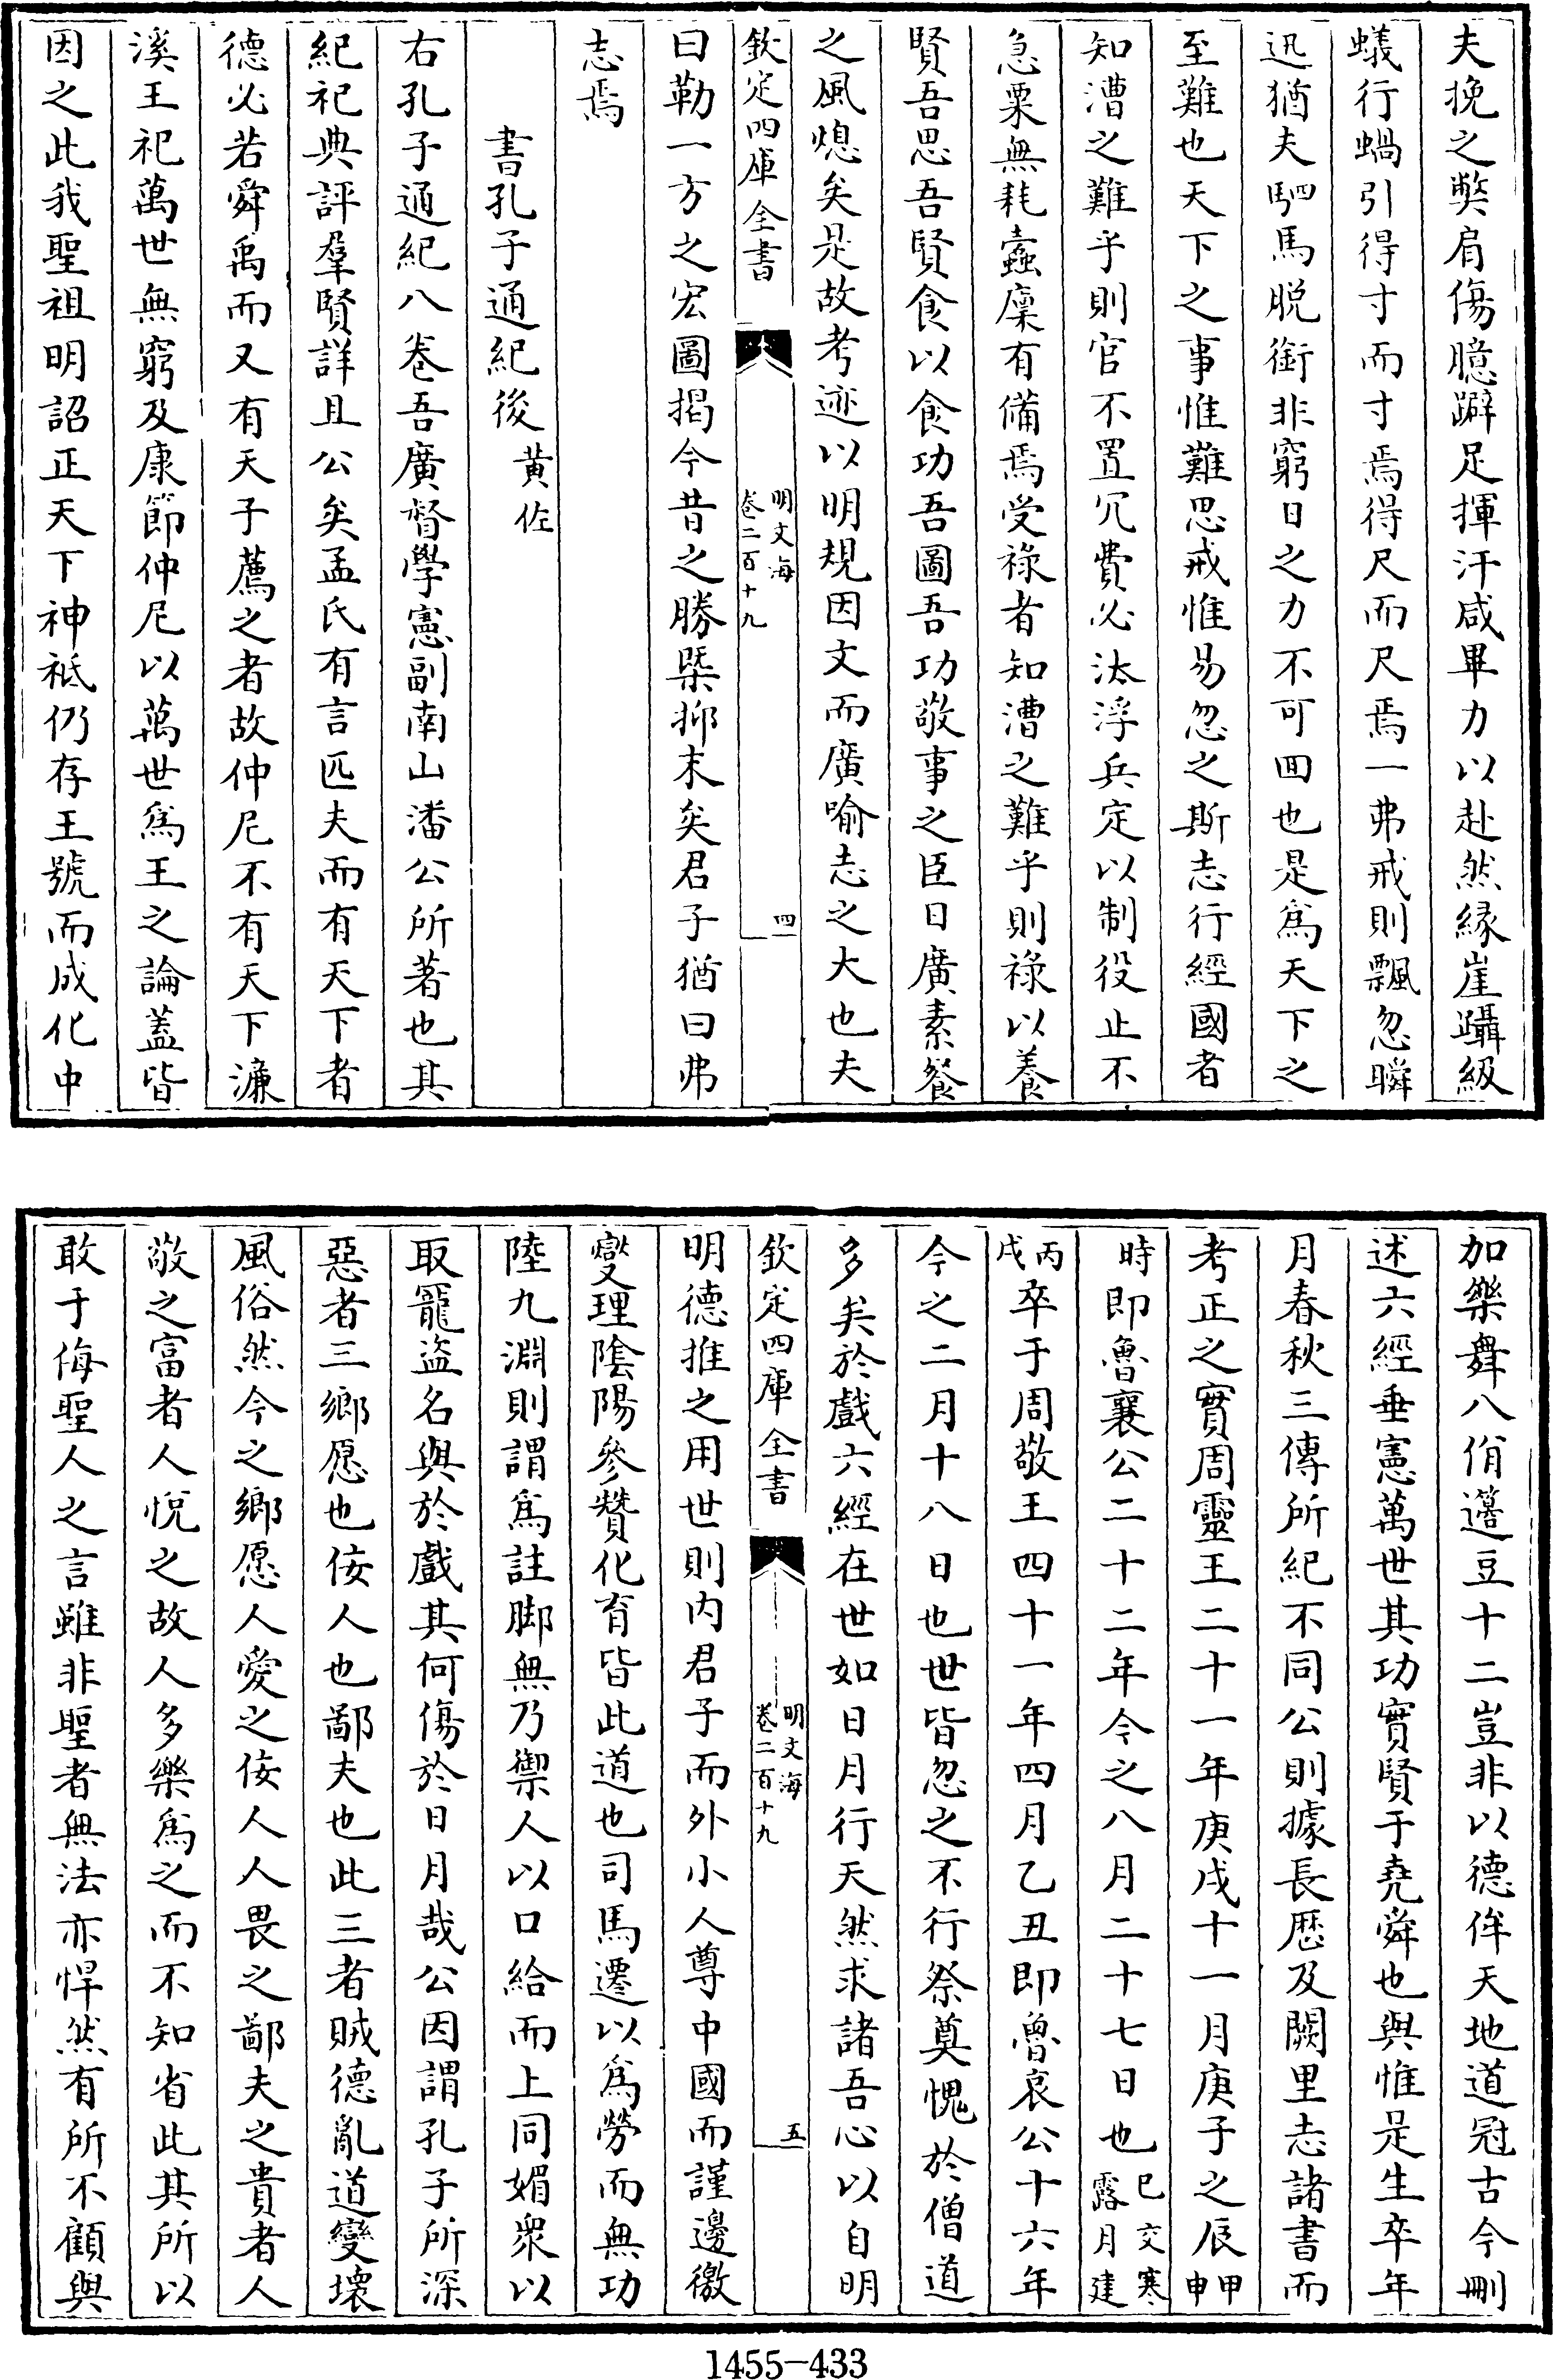 夫挽之斃肩傷臆躃足揮汗咸畢力以赴然縁崖躡級
蟻行蝸引得寸而寸焉得尺而尺焉一弗戒則飄忽瞬
迅猶夫駟馬脱銜非窮日之力不可回也是為天下之
至難也天下之事惟難思戒惟易忽之斯志行經國者
知漕之難乎則官不置冗費必汰浮兵定以制役止不
急粟無耗蠧廩有備焉受祿者知漕之難乎則祿以養
賢吾思吾賢食以食功吾圖吾功敬事之臣日廣素餐
之風熄矣是故考迹以明規因文而廣喻志之大也夫
欽定四庫全書
明文海
卷二百十九
四
曰勒一方之宏圖揭今昔之勝槩抑末矣君子猶曰弗
志焉
書孔子通紀後 黄佐
右孔子通紀八卷吾廣督學憲副南山潘公所著也其
紀祀典評羣賢詳且公矣孟氏有言匹夫而有天下者
德必若舜禹而又有天子薦之者故仲尼不有天下濂
溪王祀萬世無窮及康節仲尼以萬世為王之論蓋皆
因之此我聖祖明詔正天下神祇仍存王號而成化中
加樂舞八佾籩豆十二豈非以德侔天地道冠古今刪
述六經垂憲萬世其功實賢于堯舜也與惟是生卒年
月春秋三傳所紀不同公則據長歴及闕里志諸書而
考正之實周靈王二十一年庚戌十一月庚子之辰甲申
時即魯襄公二十二年今之八月二十七日也已交寒露月建
丙戌卒于周敬王四十一年四月乙丑即魯哀公十六年
今之二月十八日也世皆忽之不行祭奠愧於僧道
多矣於戲六經在世如日月行天然求諸吾心以自明
欽定四庫全書
明文海
卷二百十九
五
明德推之用世則内君子而外小人尊中國而謹邊徼
燮理隂陽參贊化育皆此道也司馬遷以為勞而無功
陸九淵則謂為註脚無乃禦人以口給而上同媚衆以
取寵盜名與於戲其何傷於日月哉公因謂孔子所深
惡者三鄉愿也佞人也鄙夫也此三者賊德亂道變壊
風俗然今之鄉愿人愛之佞人人畏之鄙夫之貴者人
敬之富者人悅之故人多樂為之而不知省此其所以
敢于侮聖人之言雖非聖者無法亦悍然有所不顧與
1455-433